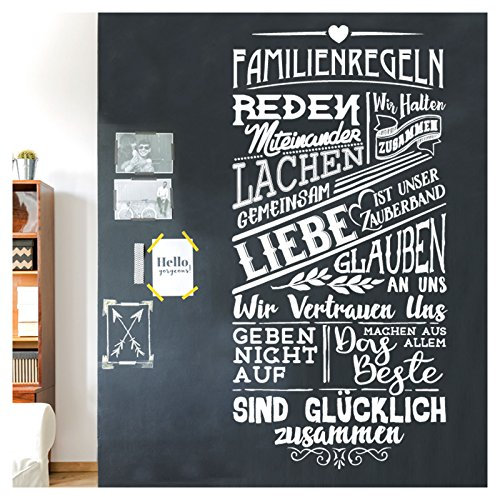 FAMILIENREGELN
REDEN
Miteinander
Wir Halten
ZUSAMMEN
LACHEN
GEMEINSAM
LIEBE IST UNSER
ZAUBERBAND
GLAUBEN
AN UNS
Wir Vertrauen Uns
GEBEN
NICHT
AUF
MACHEN AUS
ALLEM
Das
Beste
SIND GLÜCKLICH
zusammen
Hello,
gorgeous!